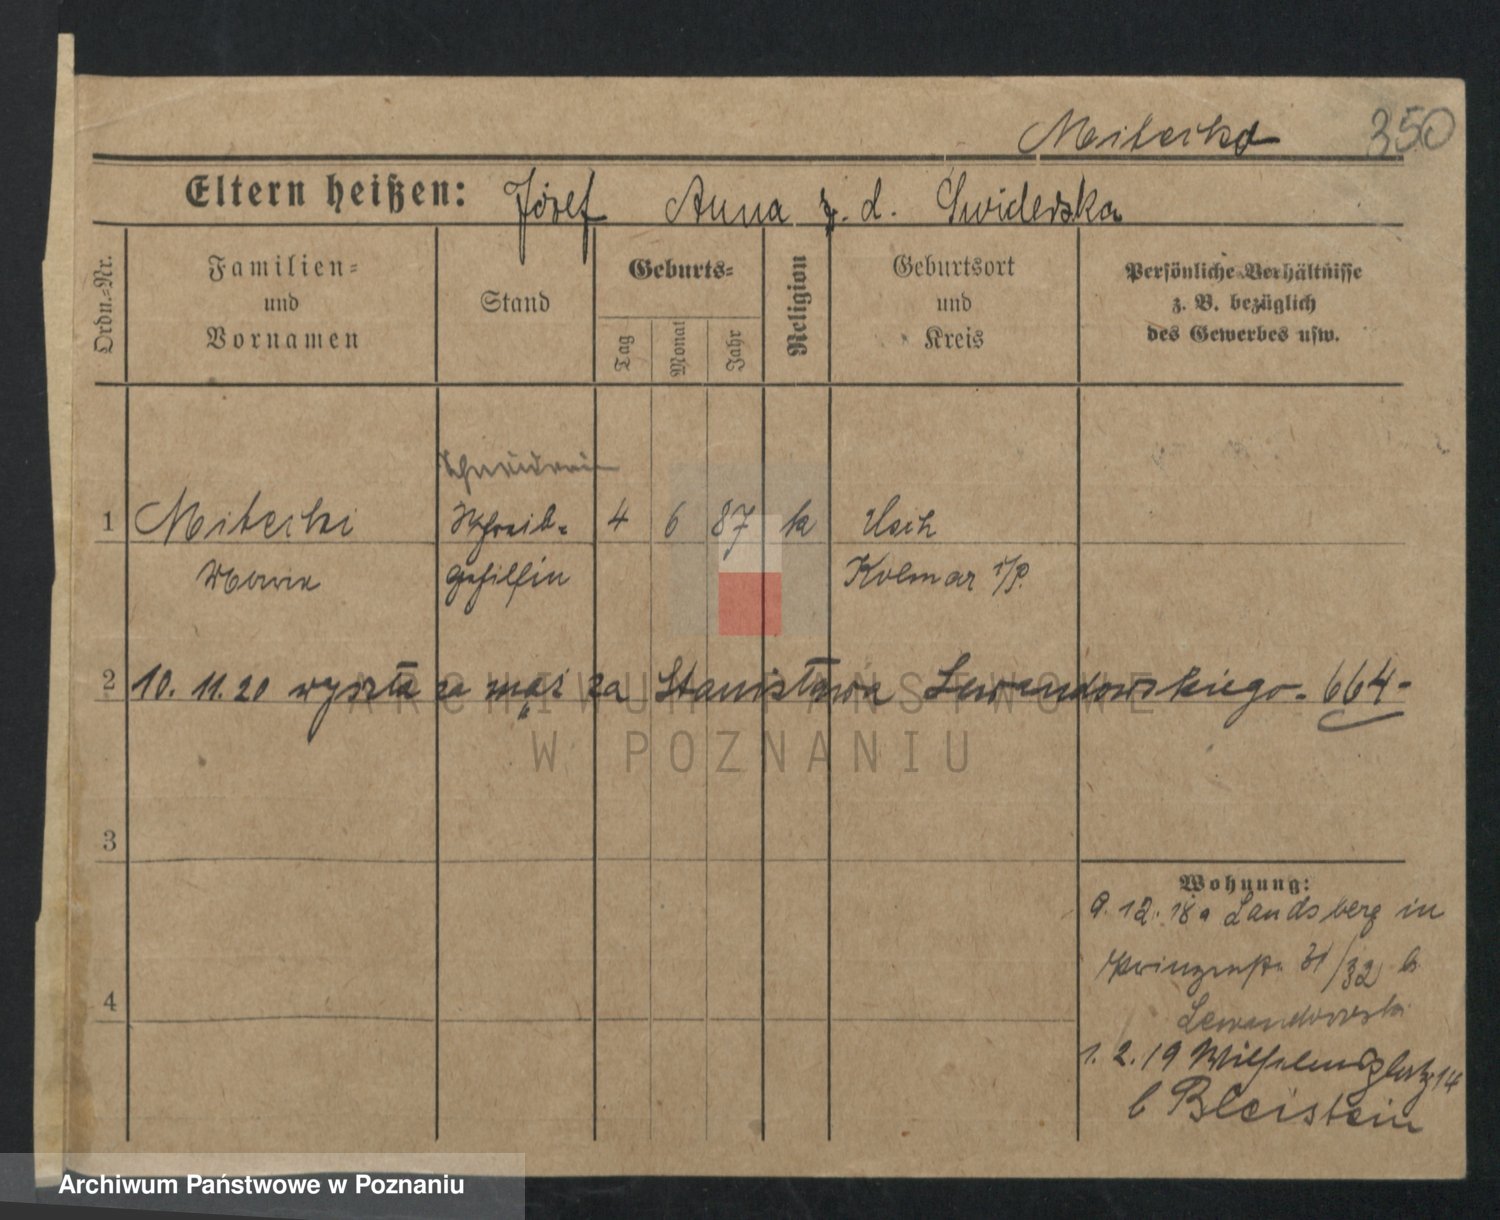 Mitecka 350
Eltern heißen: Józef Anna z. d. Swiderska
Ordn.-Nr.
Familien- und Vornamen
Stand
Geburts-
Tag
Monat
Jahr
Religion
Geburtsort und Kreis
Persönliche Verhältnisse
z. B. bezüglich
des Gewerbes usw.
Schneiderin
1 Mitecki Schreib- 4 6 87 k Usch
Maria gehilfin Kolmar i/P.
2 10. 11. 20 wyszła za mąż za Stanisława Lewandowskiego - 664 -
3
Wohnung:
9. 12. 18 a Landsberg in
Prinzenstr. 31/32 b
4
Lewandowska
1. 2. 19 Wilhelmsplatz 14
b Bleistein
ARCHIWUM PAŃSTWOWE
W POZNANIU
Archiwum Państwowe w Poznaniu